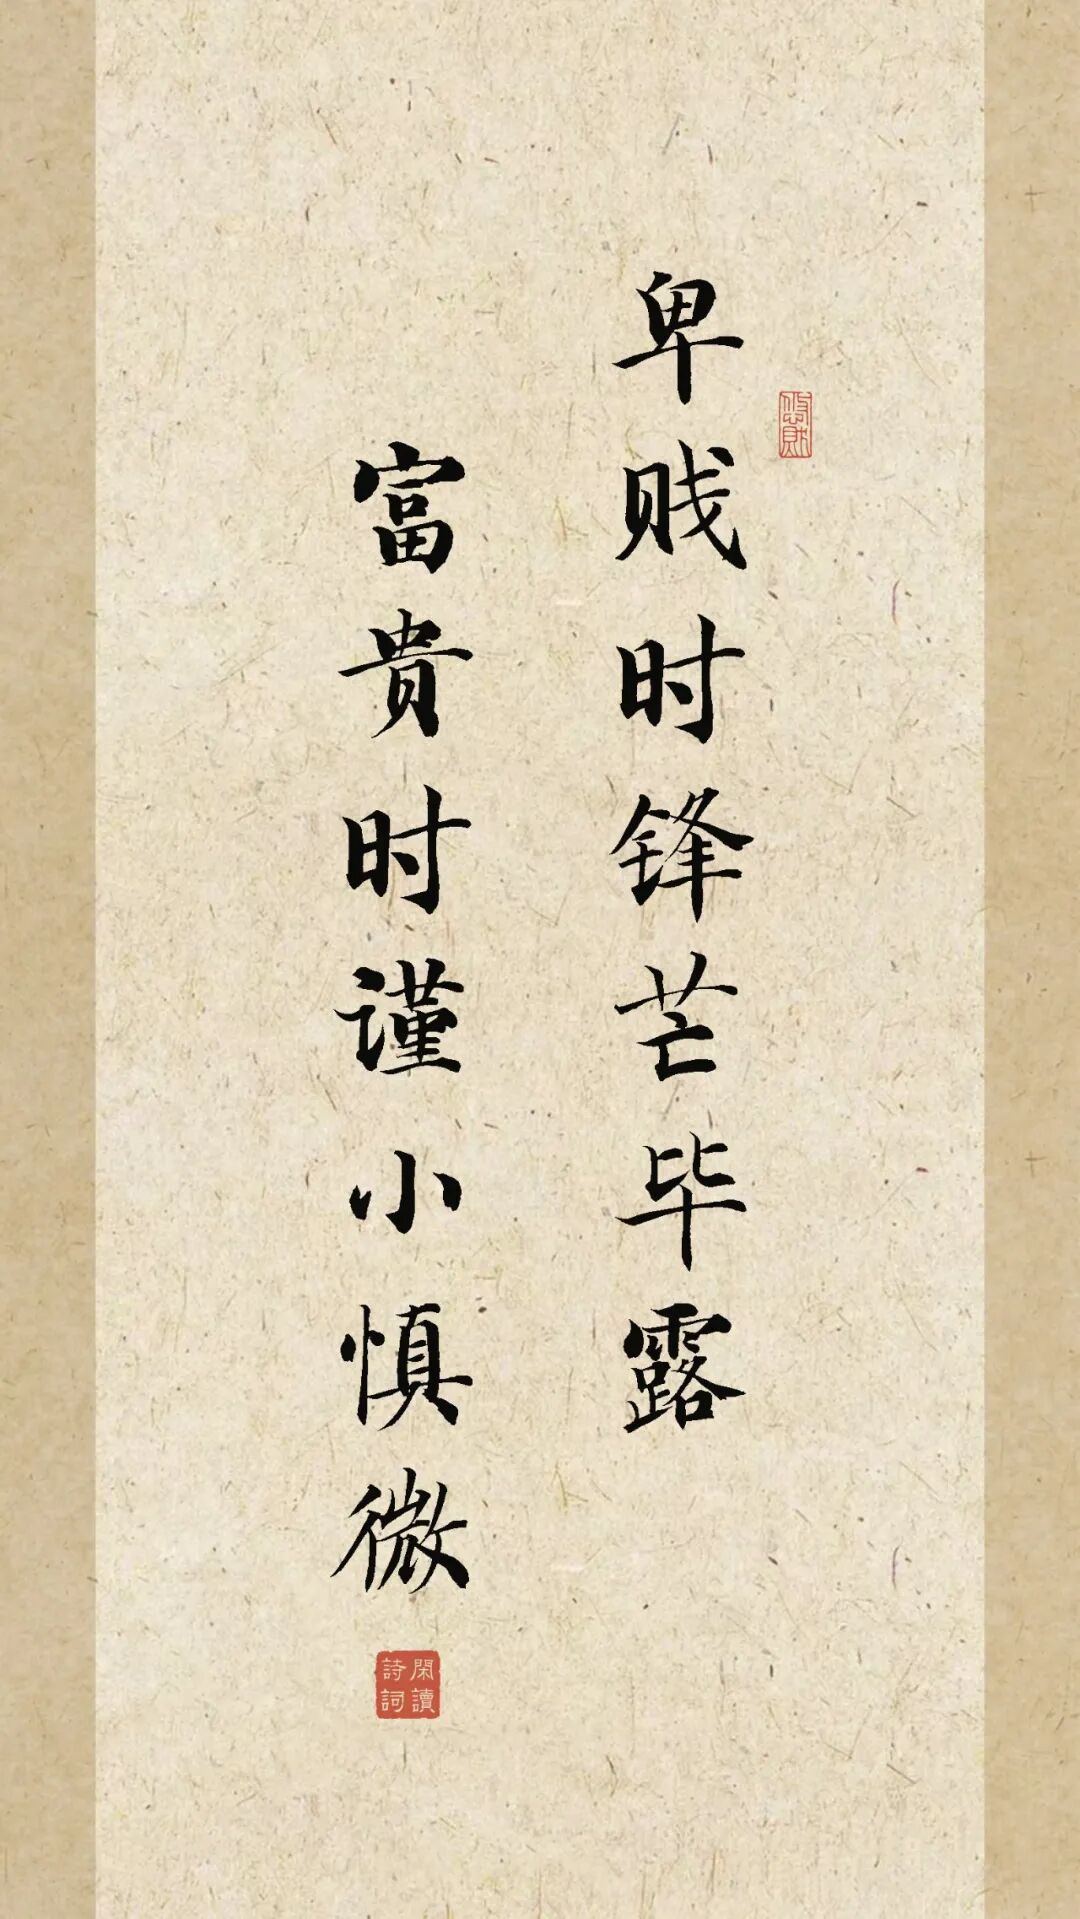 卑贱时锋芒毕露
富贵时谨小慎微
閑讀
詩詞